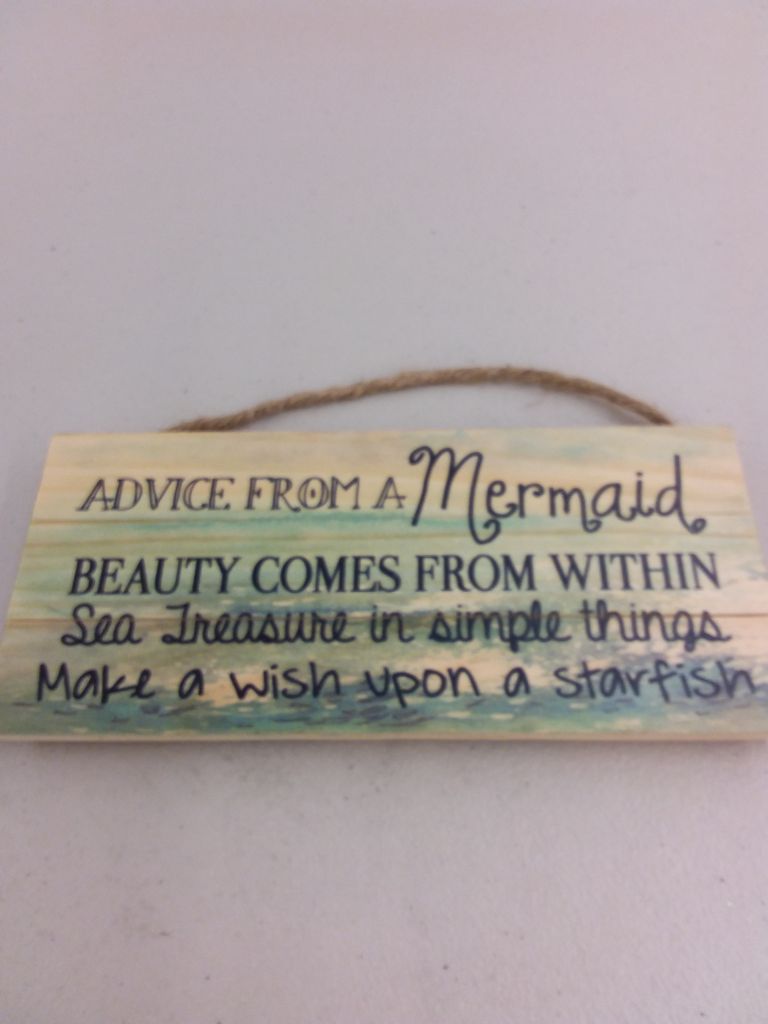 ADVICE FROM A Mermaid
BEAUTY COMES FROM WITHIN
Sea Treasure in simple things
Make a wish upon a starfish